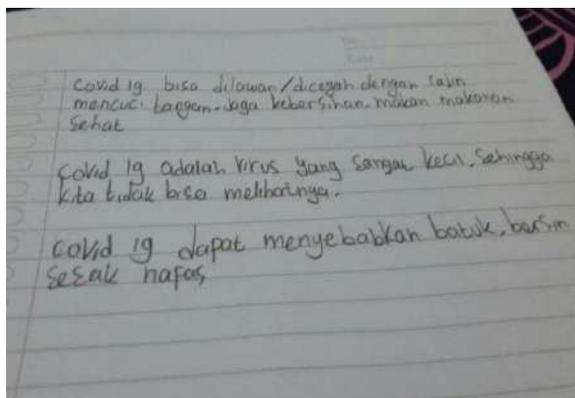 Covid 19 bisa dilawan/dicegah dengan rajin
mencuci tangan. Jaga kebersihan. makan makanan
Sehat
Covid 19 adalah virus yang sangat kecil. Sehingga
kita tidak bisa melihatnya.
covid 19 dapat menyebabkan batuk, bersin
sesak nafas